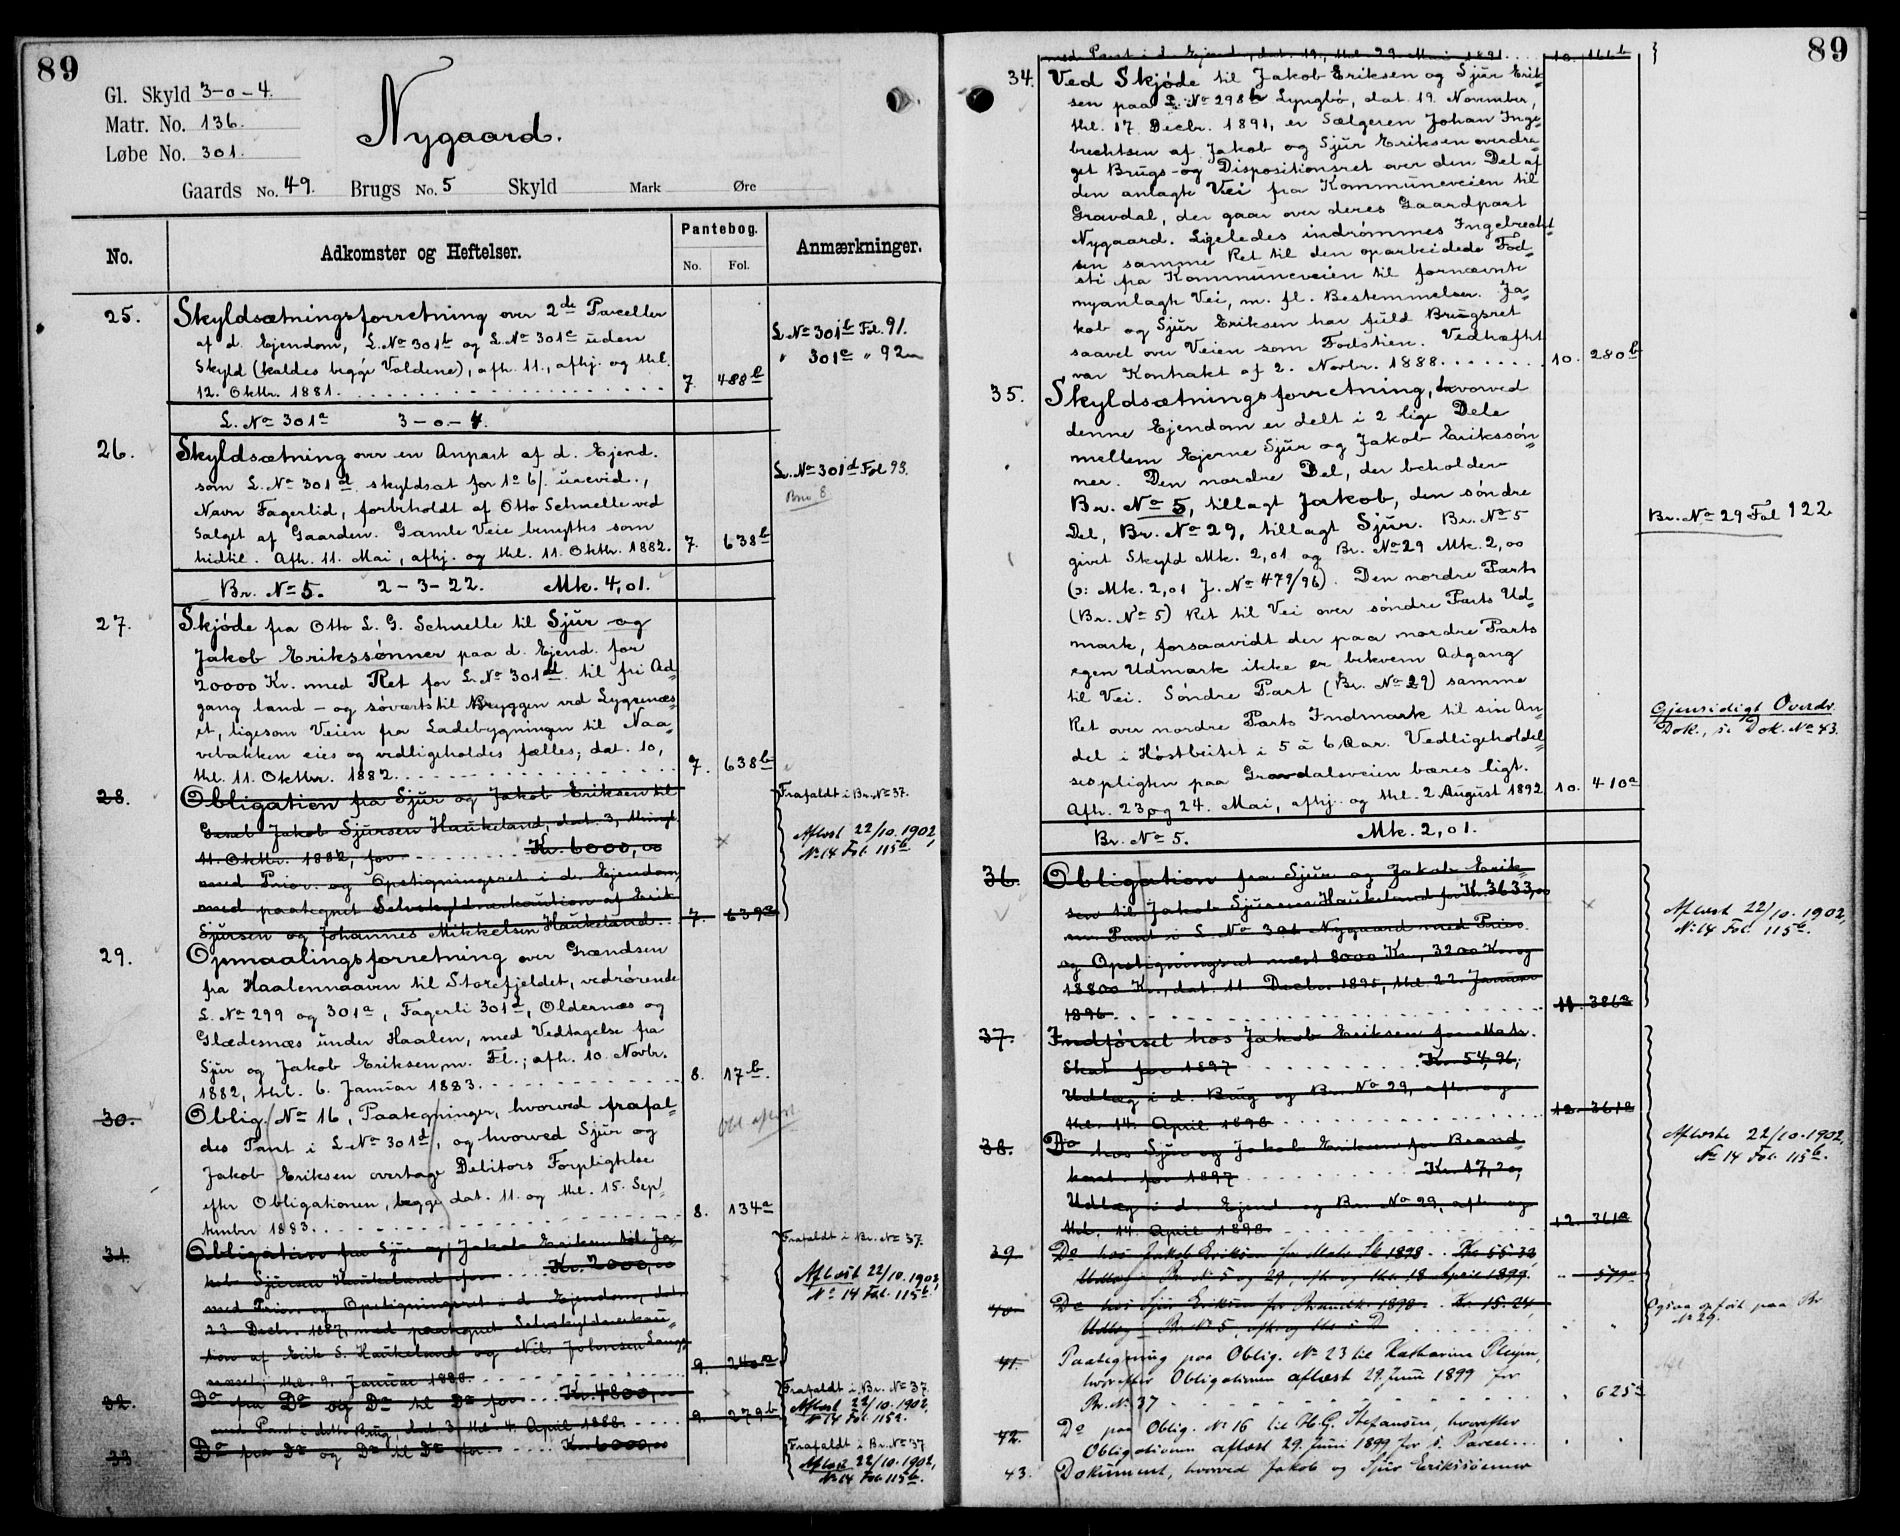 89
Gl. Skyld 3-0-4.
Matr. No. 136.
Løbe No. 301.
Nygaard.
Gaards No. 49. Brugs No. 5 Skyld Mark Øre
No.
Adkomster og Heftelser.
Pantebog.
No. Fol.
Anmærkninger.
25. Skyldsætningsforretning over 2de Parceller
af d. Ejendom, L. No 301b og L. No 301c uden
Skyld (kaldes begge Voldene), afh. 11., afhj. og thl.
12. Oktbr. 1881. 7. 488b
L. No 301b Fol. 91.
" 301c " 92
L. No 301a 3-0-4.
26. Skyldsætning over en Anpart af d. Ejend.
som L. No 301d skyldsat for 1o 6/. urevid.,
Navn Fagerlid, forbeholdt af Otto Schnelle ved
Salget af Gaarden. Gamle Veie benyttes som
hidtil. Afh. 11. Mai, afhj. og thl. 11. Oktbr. 1882. 7. 638b
L. No 301d Fol 93.
Bno 8
Br. No 5. 2-3-22. Mk. 4,01.
27. Skjøde fra Otto L. G. Schnelle til Sjur og
Jakob Erikssønner paa d. Ejend. for
20000 Kr. med Ret for L. No 301d til fri Ad-
gang land- og søværts til Bryggen ved Lygrenæs-
et, ligesom Veien fra Ladebygningen til Naa-
vebakken eies og vedligeholdes fælles; dat. 10,
thl. 11. Oktbr. 1882. 7. 638b
28. Obligation fra Sjur og Jakob Eriksen til
Jakob Sjursen Haukeland, dat. 3,
11. Oktbr. 1882, for Kr. 6000,00
med Prior. og Opstigningsret i d. Ejendom,
med paategnet Selvskyldnerkaution af Erik
Sjursen og Johannes Mikkelsen Haukeland. 7. 639a
Frafaldt i Br. No 37.
Aflæst 22/10. 1902,
No 14 Fol. 115b.
29. Opmaalingsforretning over Grændsen
fra Haalennaavn til Storefjeldet, vedrørende
L. No 299 og 301a, Fagerli 301d, Oldernæs og
Glædesnæs under Haalen, med Vedtagelse fra
Sjur og Jakob Eriksen m. Fl.; afh. 10. Novbr.
1882, thl. 6. Januar 1883. 8. 17b.
30. Oblig. No 16, Paategninger, hvorved frafal-
des Pant i L. No 301d, og hvorved Sjur og
Jakob Eriksen overtage Debitors Forpligtelse
efter Obligationen, begge dat. 11. og thl. 15. Sep-
tember 1883. 8. 134a
31. Obligation fra Sjur og Jakob Eriksen til Ja-
kob Sjursen Haukeland for Kr. 2000,00
med Prior. og Opstigningsret i d. Ejendom, dat.
23. Decbr. 1887, med paategnet Selvskyldnerkau-
tion af Erik S. Haukeland og Nils Johnsen
thl. 9. Januar 1888. 9. 240a
Frafaldt i Br. No 37.
Aflæst 22/10. 1902,
No 14 Fol. 115b.
32. Do fra Do og Do til Do for Kr. 4800,00
med Pant i dette Brug, dat. 3, thl. 4. April 1888. 9. 279b
Frafaldt i Br. No 37.
Aflæst 22/10. 1902,
No 14 Fol. 115b.
33. Do fra Do og Do til Do for Kr. 6000,00
Frafaldt i Br. No 37
Aflæst 22/10. 1902,
No 14 Fol. 115b.
89
med Pant i d. Ejend., dat. 19., thl. 29. Mai 1891. 10. 166b
34. Ved Skjøde til Jakob Eriksen og Sjur Erik-
sen paa L. No 298b Lyngbø, dat. 19. November,
thl. 17. Decbr. 1891, er Sælgeren Johan Inge-
brechtsen af Jakob og Sjur Eriksen overdra-
get Brugs- og Dispositionsret over den Del af
den anlagte Vei fra Kommuneveien til
Gravdal, der gaar over deres Gaardpart
Nygaard. Ligeledes indrømmes Ingebrecht-
sen samme Ret til den oparbeidede Fod-
sti fra Kommuneveien til fornævnte
nyanlagte Vei, m. fl. Bestemmelser. Ja-
kob og Sjur Eriksen har fuld Brugsret
saavel over Veien som Fodstien. Vedhæftet
var Kontrakt af 2. Novbr. 1888. 10. 280b
35. Skyldsætningsforretning, hvorved
denne Ejendom er delt i 2 lige Dele
mellem Ejerne Sjur og Jakob Erikssøn-
ner. Den nordre Del, der beholder
Br. No 5, tillagt Jakob, den søndre
Del, Br. No 29, tillagt Sjur. Br. No 5
givet Skyld Mk. 2,01 og Br. No 29 Mk. 2,00
(o: Mk. 2,01 J. No 479/96). Den nordre Parts
(Br. No 5) Ret til Vei over søndre Parts Ud-
mark, forsaavidt der paa nordre Parts
egen Udmark ikke er bekvem Adgang
til Vei. Søndre Part (Br. No 29) samme
Ret over nordre Parts Indmark til sin An-
del i Høstbeitet i 5 à 6 Aar. Vedligeholdel-
sespligten paa Gravdalsveien bæres ligt.
Afh. 23 og 24. Mai, afhj. og thl. 2. August 1892 10. 410a
Br. No 29 Fol 122
Gjensidigt Overdr.
Dok., se Dok. No 43.
Br. No 5. Mk. 2,01.
36. Obligation fra Sjur og Jakob Erik-
sen til Jakob Sjursen Haukeland for Kr. 3633,00
m. Pant i L. No 301 Nygaard med Prior.
og Opstigningsret næst 8000 Kr., 3200 Kr. og
13800 Kr., dat. 11. Decbr. 1895, thl. 22. Januar
1896. 11. 386a
Aflæst 22/10. 1902,
No 14 Fol. 115b.
37. Indførsel hos Jakob Eriksen for Matr.
Skat for 1897 Kr. 54,96,
Udlæg i d. Brug og Br. No 29, afh. og
thl. 14. April 1898 12. 361a
38. Do hos Sjur og Jakob Eriksen for Brand-
kont. for 1897 Kr. 17,20,
Udlæg i d. Ejend. og Br. No 29, afh. og
thl. 14. April 1898 12. 361a
Aflæste 22/10. 1902,
No 14 Fol. 115b.
39. Do hos Jakob Eriksen for Matr. Sk. 1898 Kr. 55.33,
Udlæg i Br. No 5 og 29, afh. og thl. 18. April 1899. " 579a
40. Do hos Sjur Eriksen for Brandk. 1898 Kr. 15.24,
Udlæg i Br. No 5, afh. og thl. s. D. " "
Ogsaa opført paa Br.
No 29.
41. Paategning paa Oblig. No 23 til Katharine Pleym,
hvorefter Obligationen aflæst 29. Juni 1899 for
Br. No 37 " 625a
42. Do paa Oblig. No 16 til H. G. Stefansen, hvorefter
Obligationen aflæst 29. Juni 1899 for d. Parcel. " "
43. Dokument, hvorved Jakob og Sjur Erikssønner